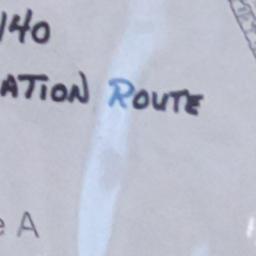 140
ATION ROUTE
e A